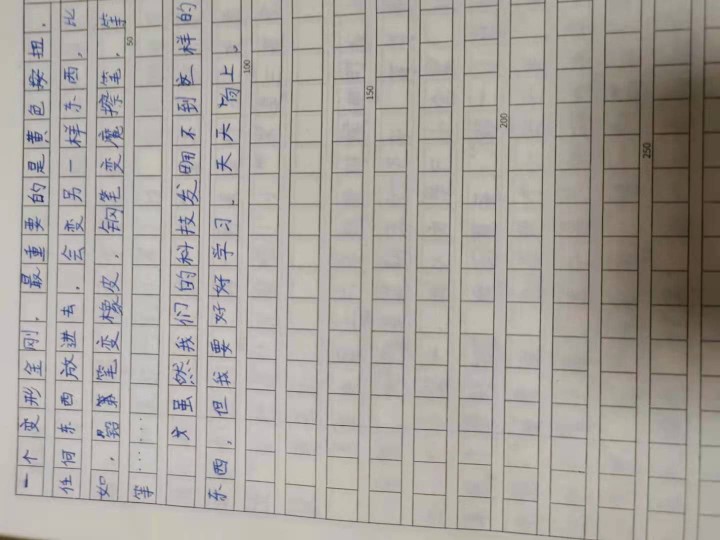 一个变形金刚。最重要的是黄色按扭。
任何东西放进去，会变另一样东西，比
如，铅笔变橡皮，钢笔变魔擦笔，等
等……
虽然我们的科技发明不到这样的
东西，但我要好好学习，天天向上，
50
100
150
200
250